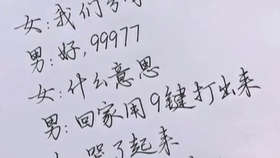 女:我们分手
男:好,99977
女:什么意思
男:回家用9键打出来
哭了起来